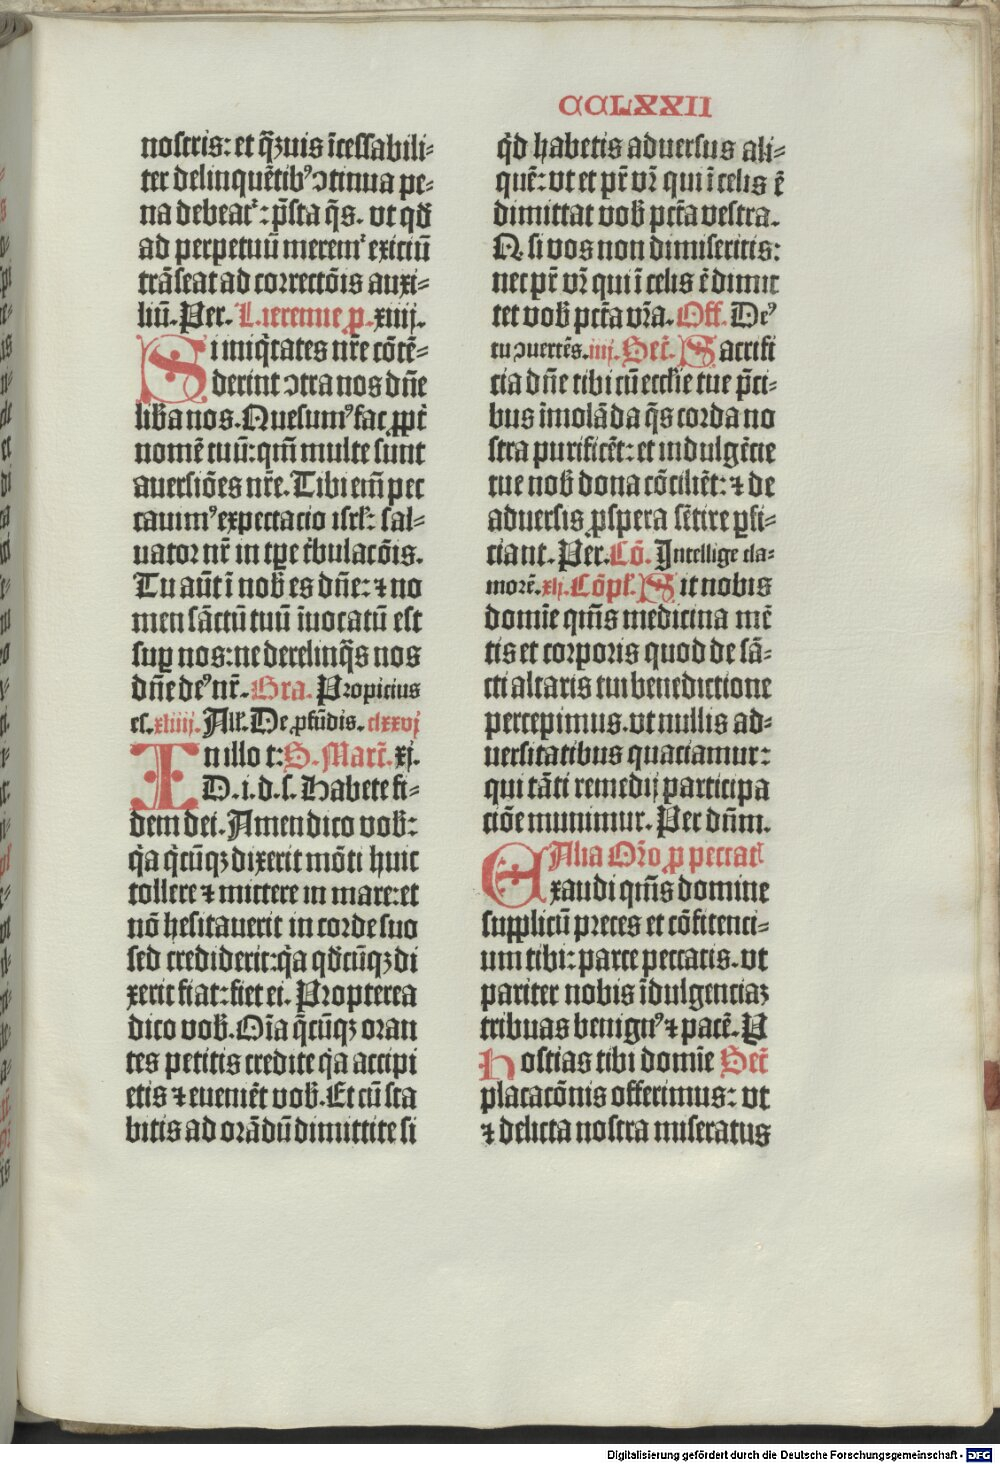 CCLXXII
nostris: et q̃ȝuis ĩcessabili-
ter delinquẽtibꝰ ↄtinua pe-
na debeat᷑: p̃sta q̃s. vt qđ
ad perpetuũ meremr᷑ exiciũ
trãseat ad correctõis auxi-
liũ. Per. L. ieremie p. xiiij.
Si iniq̃tates nr̃e cõtẽ-
derint ↄtra nos dñe
liƀa nos. Quesumꝰ fac ꝓpt̃
nomẽ tuũ: qm̃ multe sunt
auersiões nr̃e. Tibi em̃ pec
cauimꝰ expectacio isrl̃: sal-
uator nr̃ in tꝑe t̃bulacõis.
Tu aũt ĩ nob̃ es dñe: ⁊ no
men sãctũ tuũ ĩuocatũ est
suꝑ nos: ne derelinq̃s nos
dñe deꝰ nr̃. Gra. Propicius
es. xliiij. All̃. De ꝓfũdis. clxxvj
In illo t: S. Marc̃. xj.
D. i. d. s. Habete fi-
dem dei. Amen dico vob̃:
q̃a q̃cũqȝ dixerit mõti huic
tollere ⁊ mittere in mare: et
nõ hesitauerit in corde suo
sed crediderit: q̃a qđcũqȝ di
xerit fiat: fiet ei. Propterea
dico vob̃. Oĩa q̃cũqȝ oran
tes petitis credite q̃a accipi
etis ⁊ eueniẽt vob̃. Et cũ sta
bitis ad orãdũ dimittite si
q̃d habetis aduersus ali-
quẽ: vt et pr̃ vr̃ qui ĩ celis ẽ
dimittat vob̃ pctã vestra.
Q si vos non dimiseritis:
nec pr̃ vr̃ qui ĩ celis ẽ dimit
tet vob̃ pctã vr̃a. Off. Deꝰ
tu ↄuertẽs. iij. Sec̃. Sacrifi
cia dñe tibi cũ eccl̃ie tue p̃ci-
bus ĩmolãda q̃s corda no
stra purificẽt: et indulgẽcie
tue nob̃ dona cõciliẽt: ⁊ de
aduersis ꝓspera sẽtire ꝑfi-
ciant. Per. Cõ. Intellige cla-
morẽ. xlj. Cõpl̃. Sit nobis
domĩe qm̃s medicina mẽ
tis et corporis quod de sã-
cti altaris tui benedictione
percepimus. vt nullis ad-
uersitatibus quaciamur:
qui tãti remedij participa
ciõe munimur. Per dñm.
Alia Or̃o ꝓ peccat̃
Exaudi qm̃s domine
supplicũ preces et cõfitenci-
um tibi: parce peccatis. vt
pariter nobis ĩdulgenciaȝ
tribuas benignꝰ ⁊ pacẽ. P
Hostias tibi domĩe Sec̃
placacõnis offerimus: vt
⁊ delicta nostra miseratus
Digitalisierung gefördert durch die Deutsche Forschungsgemeinschaft - DFG